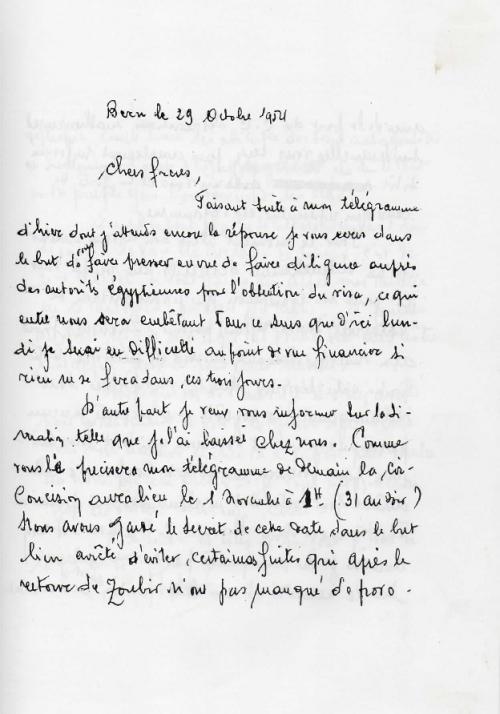 Bern le 29 Octobre 1954
Chers frères,
Faisant suite à mon télégramme
d'hier dont j'attends encore la réponse je vous écris dans
le but de vous faire presser en vue de faire diligence auprès
des autorités égyptiennes pour l'obtention du visa, ce qui
entre nous sera embêtant dans ce sens que d'ici lun-
di je serai en difficulté au point de vue financier si
rien ne se fera dans, ces trois jours.
D'autre part je veux vous informer sur la si-
tuation telle que je l'ai laissée chez nous. Comme
vous le précisera mon télégramme de demain la, Cir-
concision aura lieu le 1 Novembre à 1H (31 au soir)
Nous avons gardé le secret de cette date dans le but
bien arrêté d'éviter, certaines fuites qui après le
retour de Zoubir n'ont pas manqué de provo-